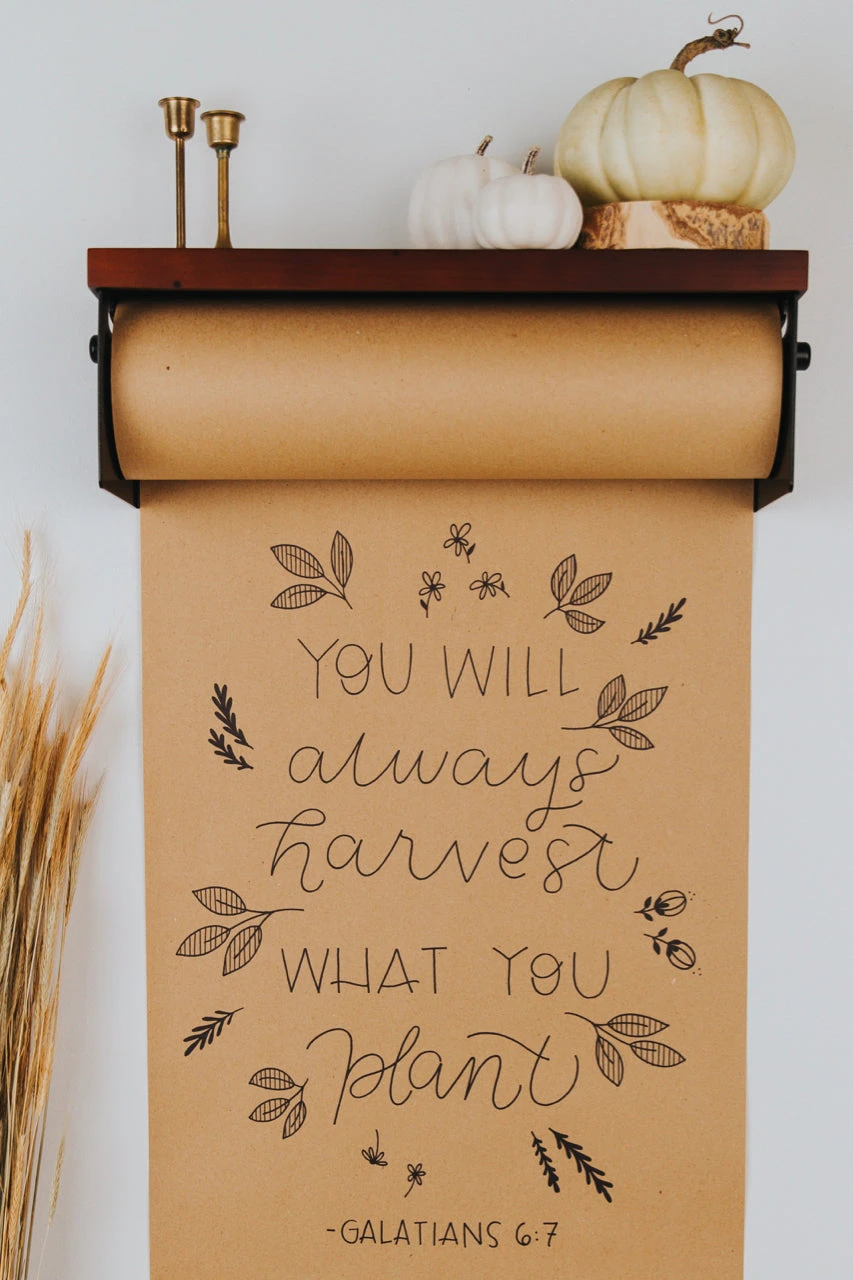 YOU WILL
always
harvest
WHAT YOU
plant
-GALATIANS 6:7